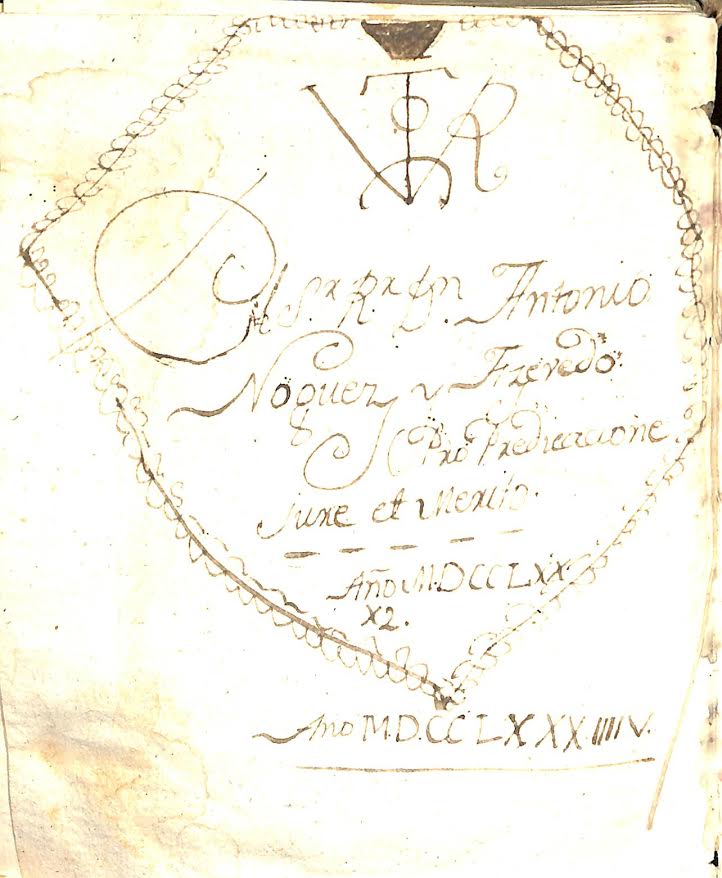 VTR
El S.r R.r Dn. Antonio
Noguez y Azevedo.
Pro Predicacione
Jure et Merito.
Año M.DCCLXX
X2.
Ano M.D.CCLXXX.IIIIV.